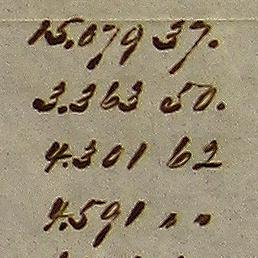 15.079 37.
3.363 50.
4.301 62
4.591 „ „